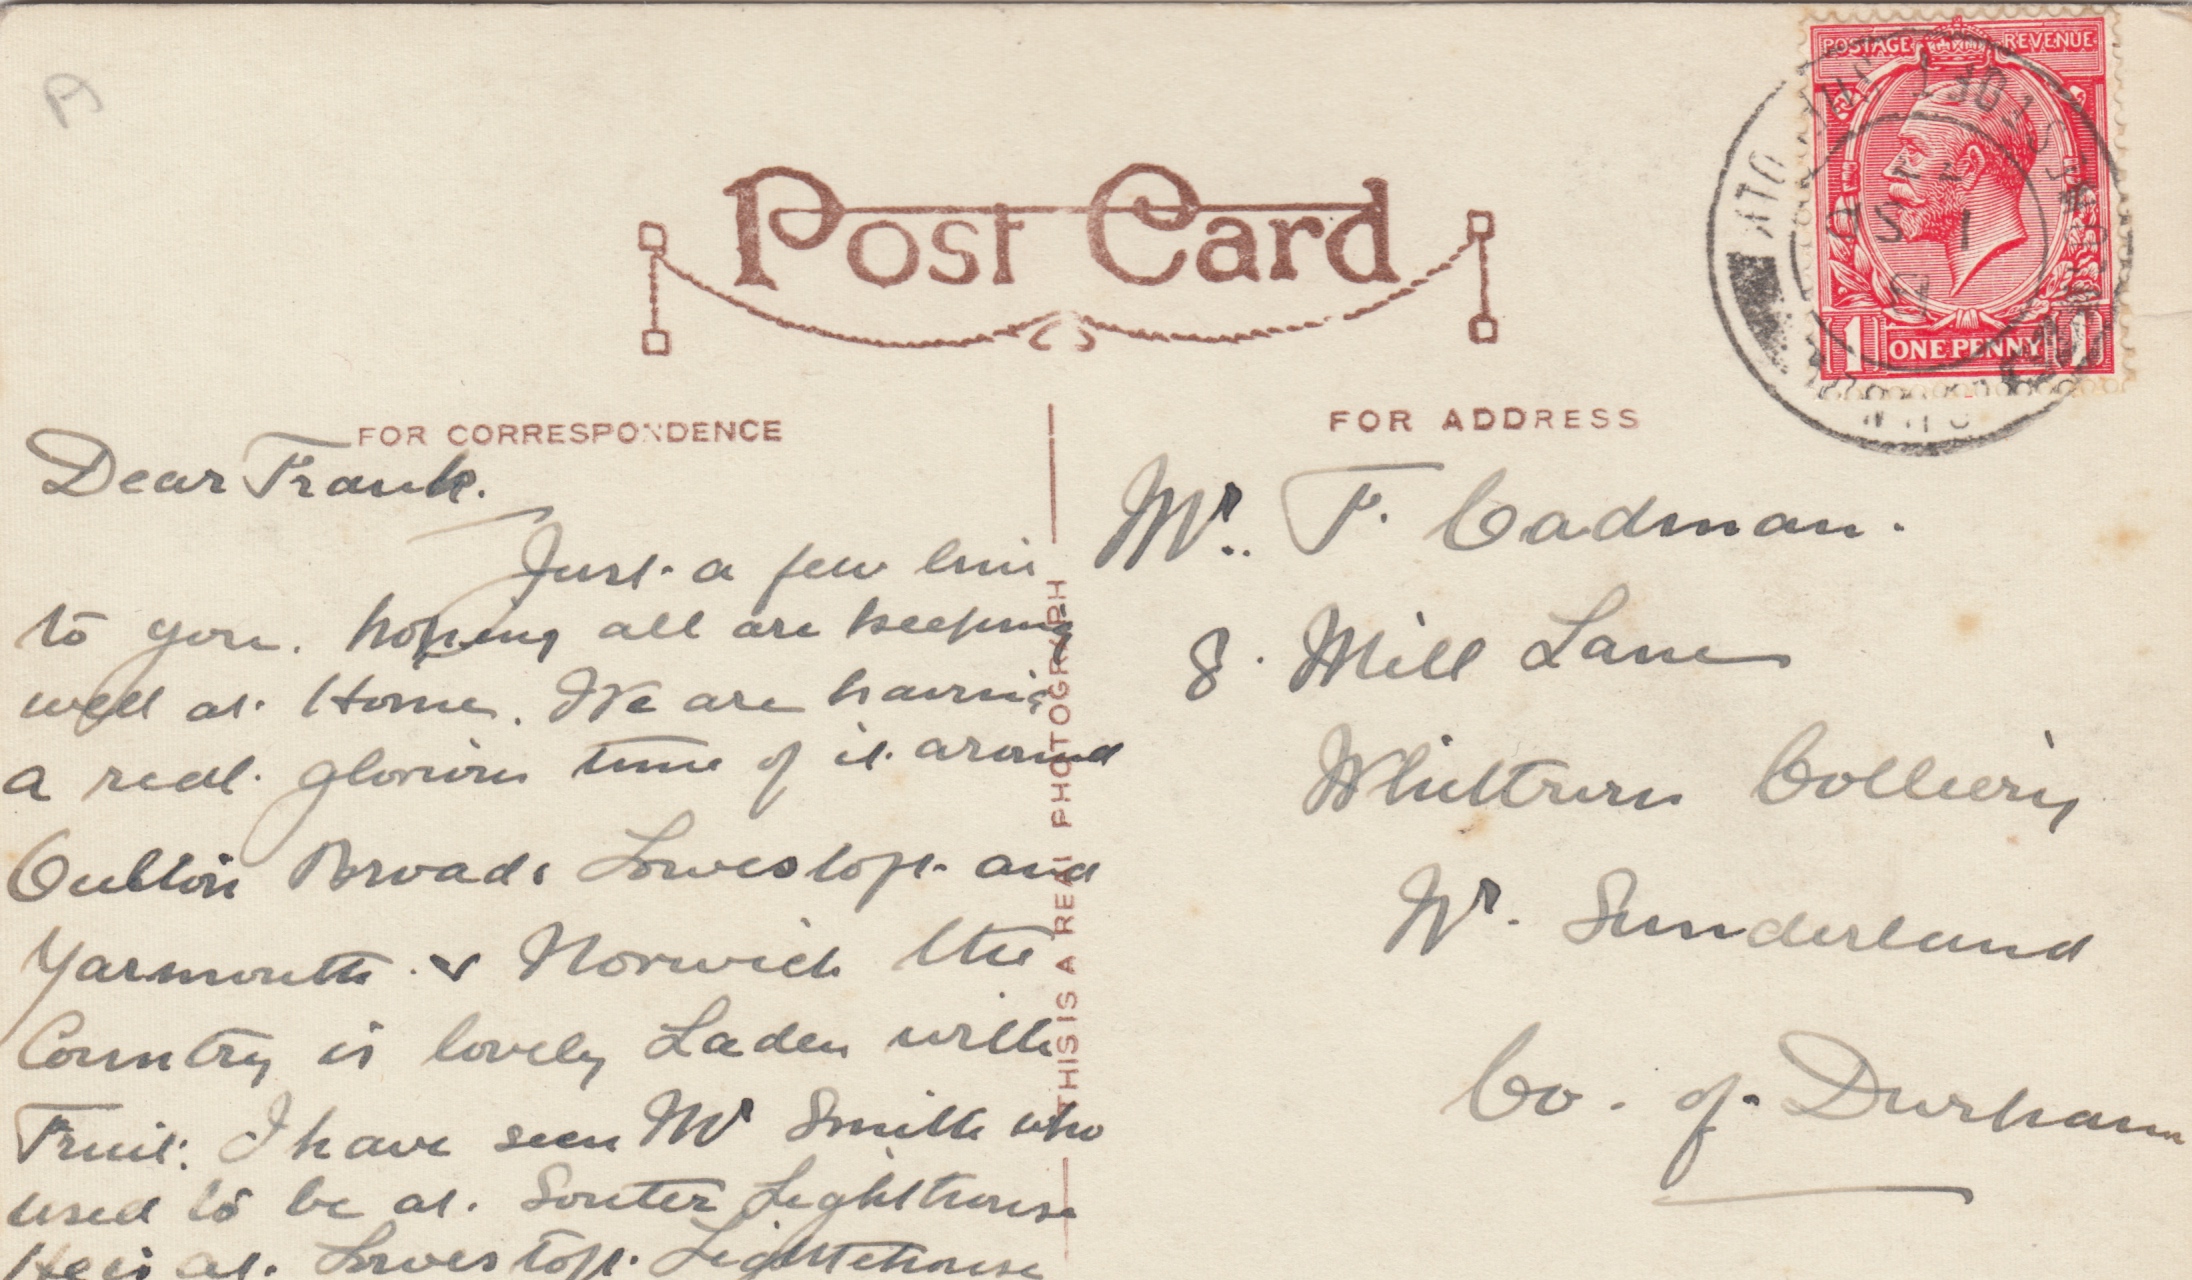 A
POSTAGE REVENUE
1 ONE PENNY 1
Post Card
FOR CORRESPONDENCE
FOR ADDRESS
THIS IS A REAL PHOTOGRAPH
Dear Frank.
Just a few lines
to you. hoping all are keeping
well at Home. We are having
a real glorious time of it around
Oulton Broads Lowestoft and
Yarmouth. & Norwich the
Country is lovely Laden with
Fruit. I have seen Mr Smith who
used to be at Souter Lighthouse
He is at Lowestoft Lighthouse
Mr. F. Cadman.
8. Mill Lane
Whitburn Colliery
Nr. Sunderland
Co. of Durham